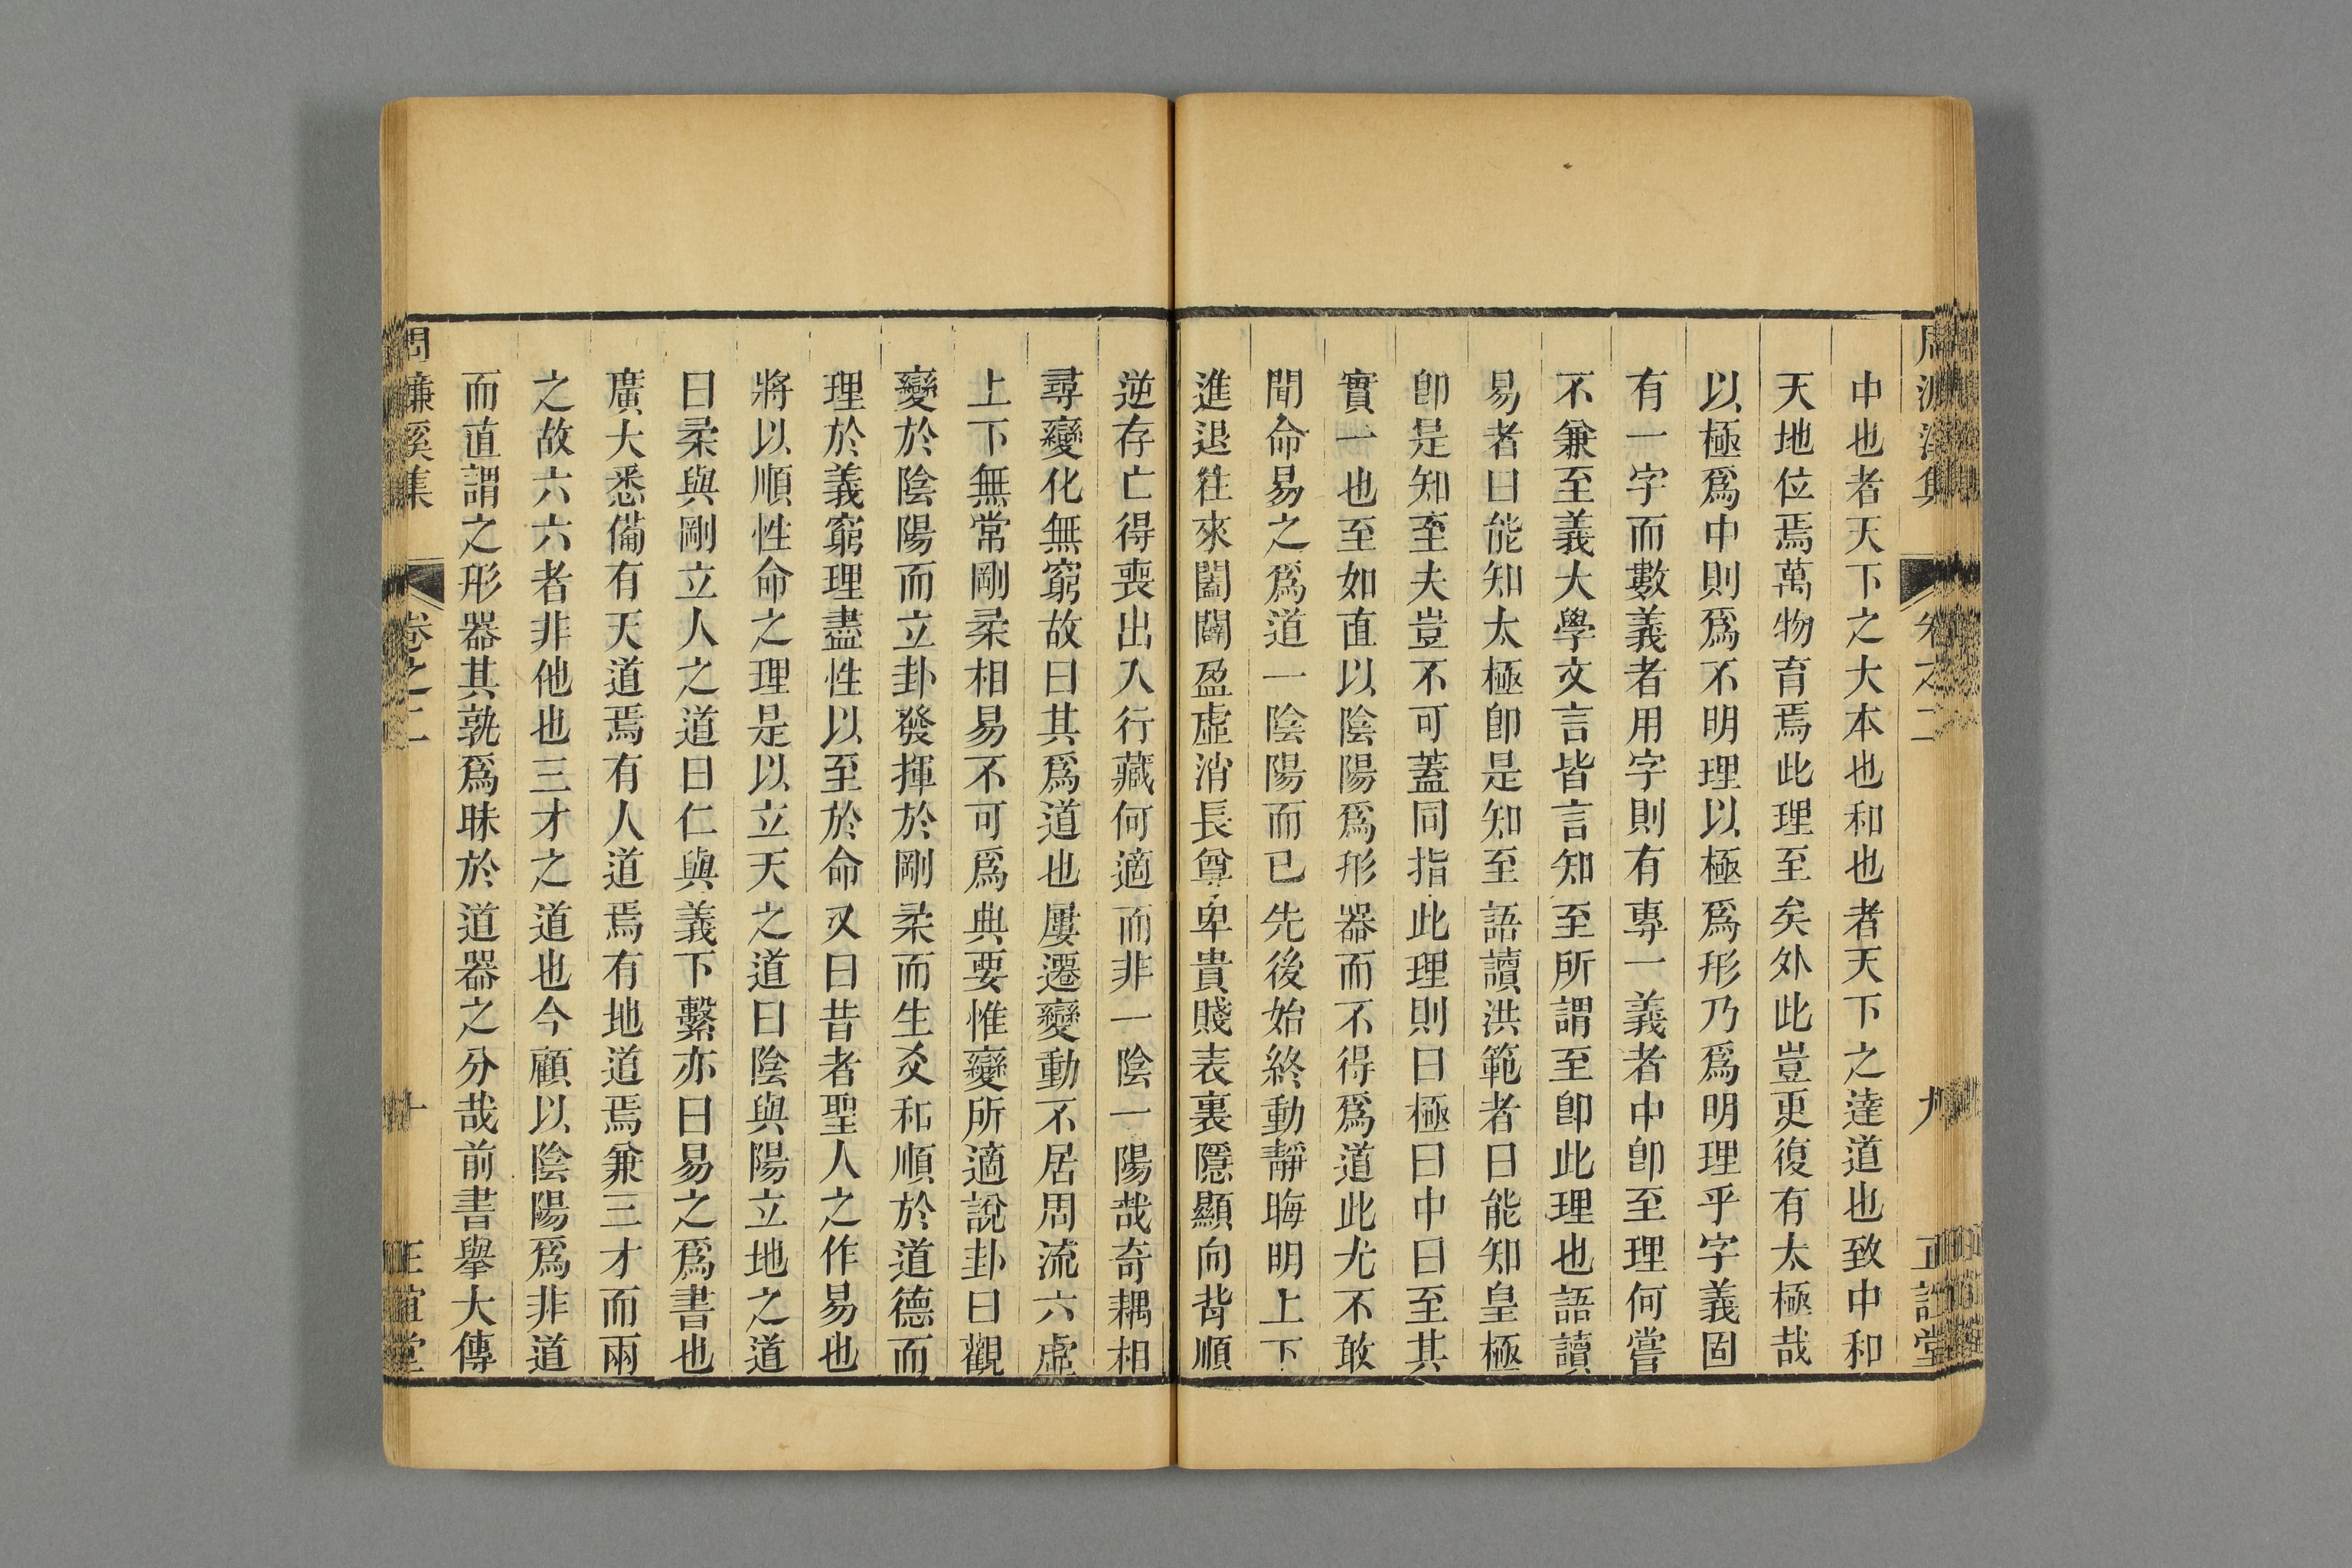 中也者天下之大本也和也者天下之達道也致中和
天地位焉萬物育焉此理至矣外此豈更復有太極哉
以極爲中則爲不明理以極爲形乃爲明理乎字義固
有一字而數義者用字則有專一義者中卽至理何嘗
不兼至義大學文言皆言知至所謂至卽此理也語讀
易者曰能知太極卽是知至語讀洪範者曰能知皇極
卽是知至夫豈不可蓋同指此理則曰極曰中曰至其
實一也至如直以陰陽爲形器而不得爲道此尤不敢
聞命易之爲道一陰陽而已先後始終動靜晦明上下
進退往來闔闢盈虛消長尊卑貴賤表裏隱顯向背順
逆存亡得喪出入行藏何適而非一陰一陽哉奇耦相
尋變化無窮故曰其爲道也屢遷變動不居周流六虛
上下無常剛柔相易不可爲典要惟變所適說卦曰觀
變於陰陽而立卦發揮於剛柔而生爻和順於道德而
理於義窮理盡性以至於命又曰昔者聖人之作易也
將以順性命之理是以立天之道曰陰與陽立地之道
曰柔與剛立人之道曰仁與義下繫亦曰易之爲書也
廣大悉備有天道焉有人道焉有地道焉兼三才而兩
之故六六者非他也三才之道也今顧以陰陽爲非道
而直謂之形器其孰爲昧於道器之分哉前書舉大傳
周濂溪集 卷之二 十 正誼堂